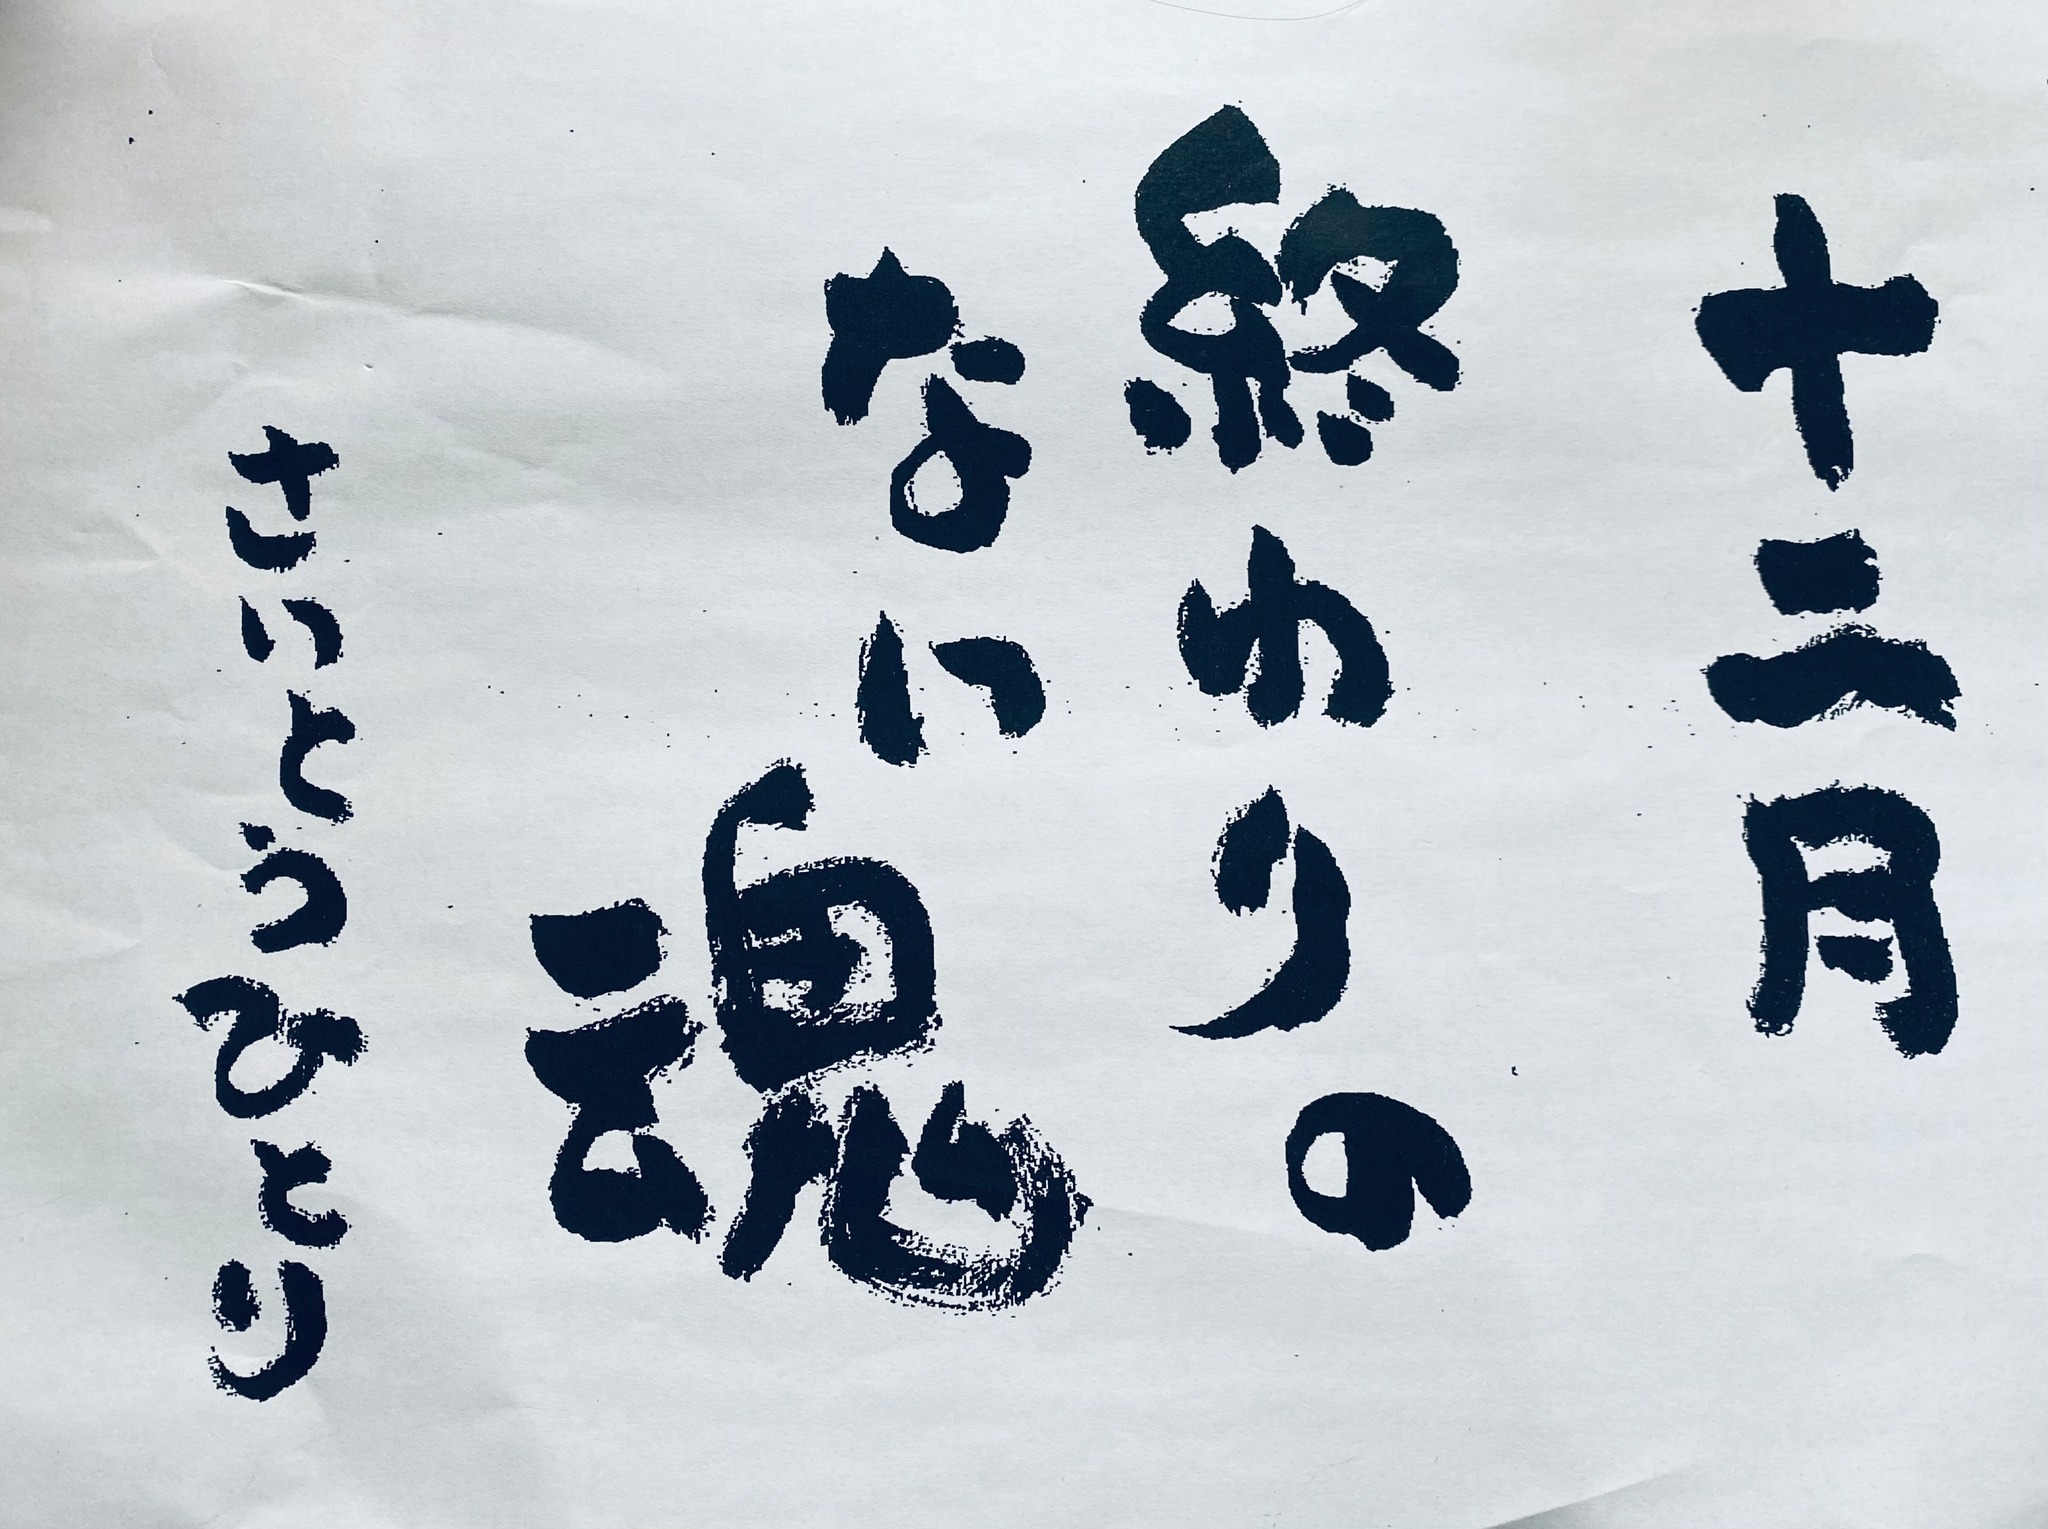 十二月
終わりの
ない魂
さいとうひとり